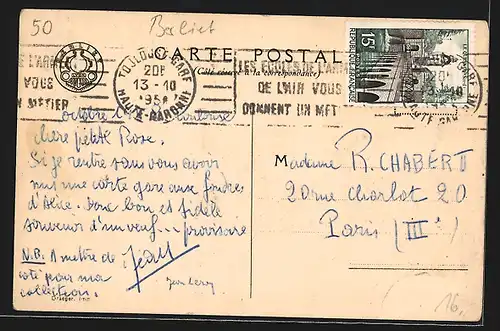 50
Berliet
16,
CARTE POSTALE
(Côté réservé à la correspondance)
TOULOUSE-GARE
20H
13-10
195
HAUTE-GARONNE
LES ECOLES DE L'ARM
DE L'AIR VOUS
DONNENT UN MET
E L'ARM
VOUS
N METIER
15F
REPUBLIQUE FRANÇAISE
octobre Toulouse
chère petite Rose.
Si je rentre sans vous avoir
mis une carte gare aux foudres
d'Aline. Donc bon et fidèle
souvenir d'un veuf... provisoire
Jean
N.B. A mettre de
côté pour ma
collection.
Jean Leroy
Draeger. Imp
Madame R. CHABERT
20 rue Charlot 20
Paris (III)